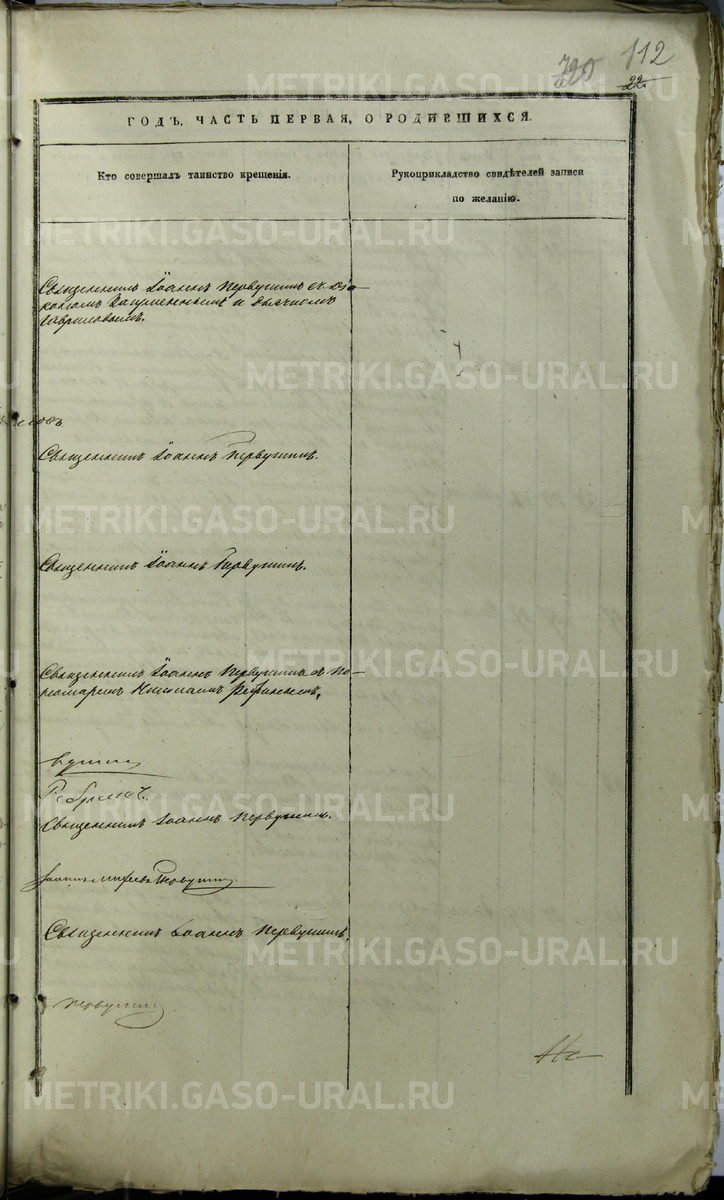 112
720
22
ГОДЪ, ЧАСТЬ ПЕРВАЯ, О РОДИВШИХСЯ.
Кто совершалъ таинство крещенія.
Рукоприкладство свидѣтелей записи
по желанію.
Священникъ Іоаннъ Первушинъ съ Діа-
кономъ и дьячкомъ
Гавриловымъ.
Священникъ Іоаннъ Первушинъ.
Священникъ Іоаннъ Первушинъ.
Священникъ Іоаннъ Первушинъ съ По-
номаремъ Николаемъ
Священникъ Іоаннъ Первушинъ.
Первушинъ
Священникъ Іоаннъ Первушинъ,
Первушинъ
METRIKI.GASO-URAL.RU
METRIKI.GASO-URAL.RU
METRIKI.GASO-URAL.RU
METRIKI.GASO-URAL.RU
METRIKI.GASO-URAL.RU
METRIKI.GASO-URAL.RU
METRIKI.GASO-URAL.RU
METRIKI.GASO-URAL.RU